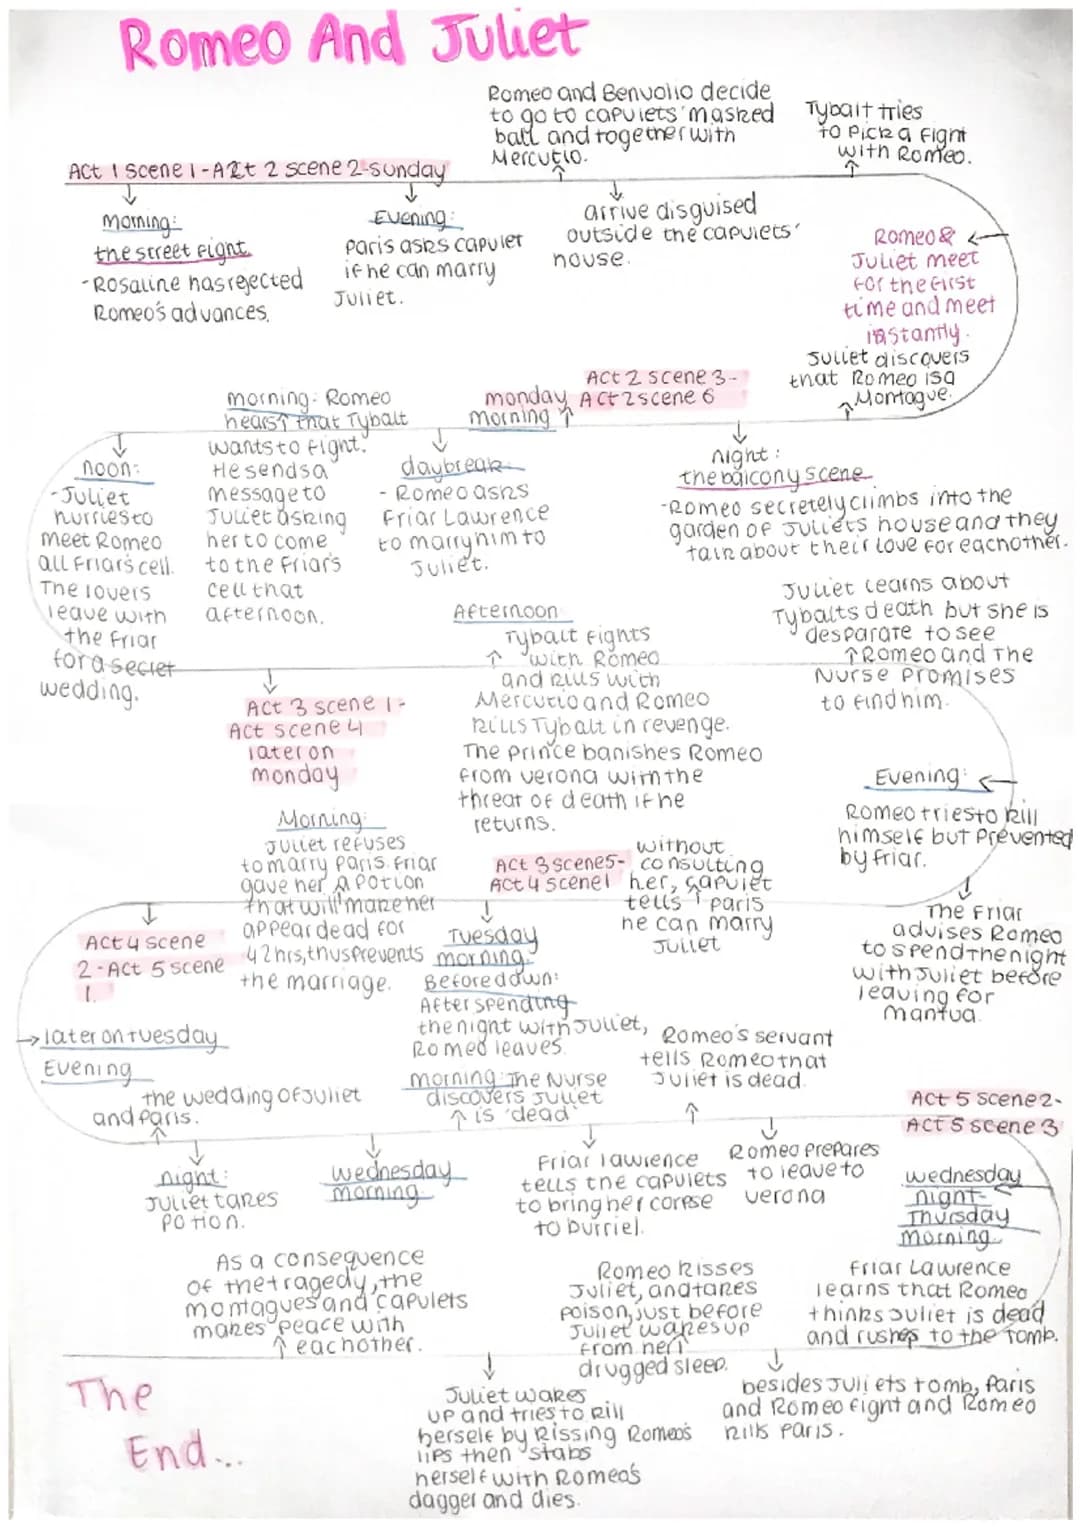 Romeo And Juliet
Romeo and Benvolio decide
to go to capulets' masked
ball and together with
Mercutio.
Tybalt tries
to pick a fight
with Romeo.
Act 1 scene 1 - Act 2 scene 2 - sunday
Morning:
the street fight.
- Rosaline has rejected
Romeo's advances.
Evening:
Paris asks capulet
if he can marry
Juliet.
arrive disguised
outside the capulets'
house.
Romeo &
Juliet meet
for the first
time and meet
instantly.
Juliet discovers
that Romeo is a
Montague.
Act 2 scene 3 -
Act 2 scene 6
monday
morning
night:
the balcony scene
- Romeo secretely climbs into the
garden of Juliets house and they
talk about their love for eachother.
daybreak
- Romeo asks
Friar Lawrence
to marry him to
Juliet.
morning: Romeo
hears that Tybalt
wants to fight.
He sends a
message to
Juliet asking
her to come
to the Friar's
cell that
afternoon.
noon:
- Juliet
hurries to
meet Romeo
all Friar's cell.
The lovers
leave with
the Friar
for a secret
wedding.
Act 3 scene 1 -
Act scene 4
later on
monday
Afternoon
Tybalt fights
with Romeo
and kills with
Mercutio and Romeo
kills Tybalt in revenge.
The prince banishes Romeo
from verona with the
threat of death if he
returns.
Juliet learns about
Tybalts death but she is
desparate to see
Romeo and The
Nurse promises
to find him.
Evening:
Romeo tries to kill
himself but prevented
by friar.
The Friar
advises Romeo
to spend the night
with Juliet before
leaving for
mantua.
without
consulting
her, capulet
tells paris
he can marry
Juliet
Act 3 scene 5 -
Act 4 scene 1
Tuesday
morning:
Before ddwn:
After spending
the night with Juliet,
Romeo leaves.
Morning:
Juliet refuses
to marry Paris. Friar
gave her a potion
that will make her
appear dead for
42hrs, thus prevents
the marriage.
Act 4 scene
2 - Act 5 scene
1.
later on tuesday
Evening
the wedding of Juliet
and Paris.
night:
Juliet takes
potion.
wednesday
morning.
morning: The Nurse
discovers Juliet
is 'dead'
Friar lawrence
tells the capulets
to bring her corpse
to burriel.
Romeo's servant
tells Romeo that
Juliet is dead.
Romeo prepares
to leave to
verona
Act 5 scene 2 -
Act 5 scene 3
wednesday
night -
Thursday
morning
Friar Lawrence
learns that Romeo
thinks Juliet is dead
and rushes to the tomb.
besides Juliets tomb, Paris
and Romeo fight and Romeo
kills Paris.
Romeo kisses
Juliet, and takes
poison, just before
Juliet wakes up
from her
drugged sleep.
Juliet wakes
up and tries to kill
herself by kissing Romeo's
lips then stabs
herself with Romeo's
dagger and dies.
As a consequence
of the tragedy, the
montagues and capulets
makes peace with
eachother.
The
End...